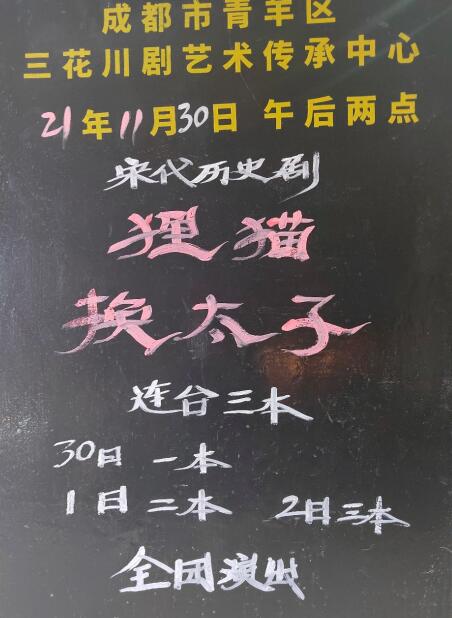 成都市青羊区
三花川剧艺术传承中心
21年11月30日 午后两点
宋代历史剧
狸猫
换太子
连台三本
30日 一本
1日二本 2日三本
全团演出